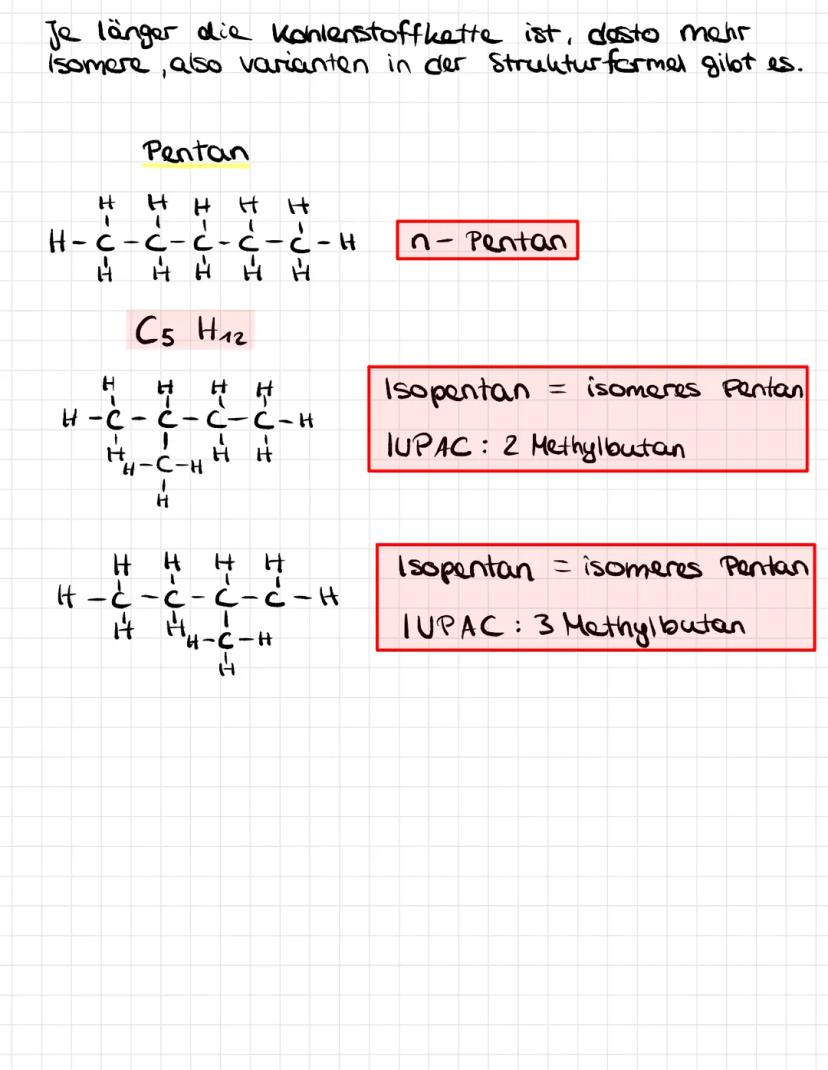 Je länger die Kohlenstoffkette ist, desto mehr
Isomere, also varianten in der Strukturformel gibt es.
Pentan
H H H H H
H-C-C-C-C-C-H
H H H H H
n- Pentan
C5 H12
H H H H
H-C-C-C-C-H
H H-C-H H H
H
Isopentan = isomeres Pentan
IUPAC: 2 Methylbutan
H H H H
H-C-C-C-C-H
H H H-C-H
H
Isopentan = isomeres Pentan
IUPAC: 3 Methylbutan